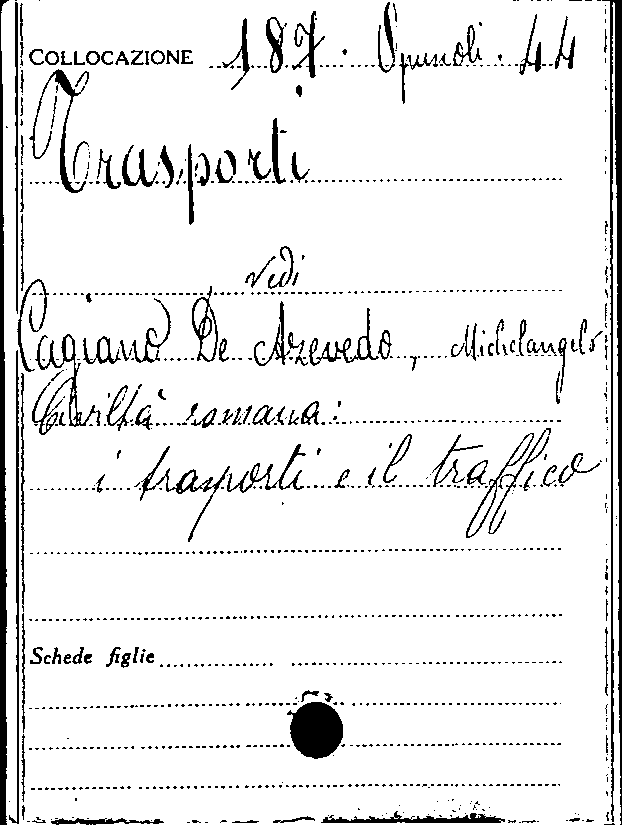 COLLOCAZIONE 187. Spinoli. 44
Trasporti
vedi
Cagiano De Azevedo, Michelangelo
Civiltà romana:
i trasporti e il traffico
Schede figlie